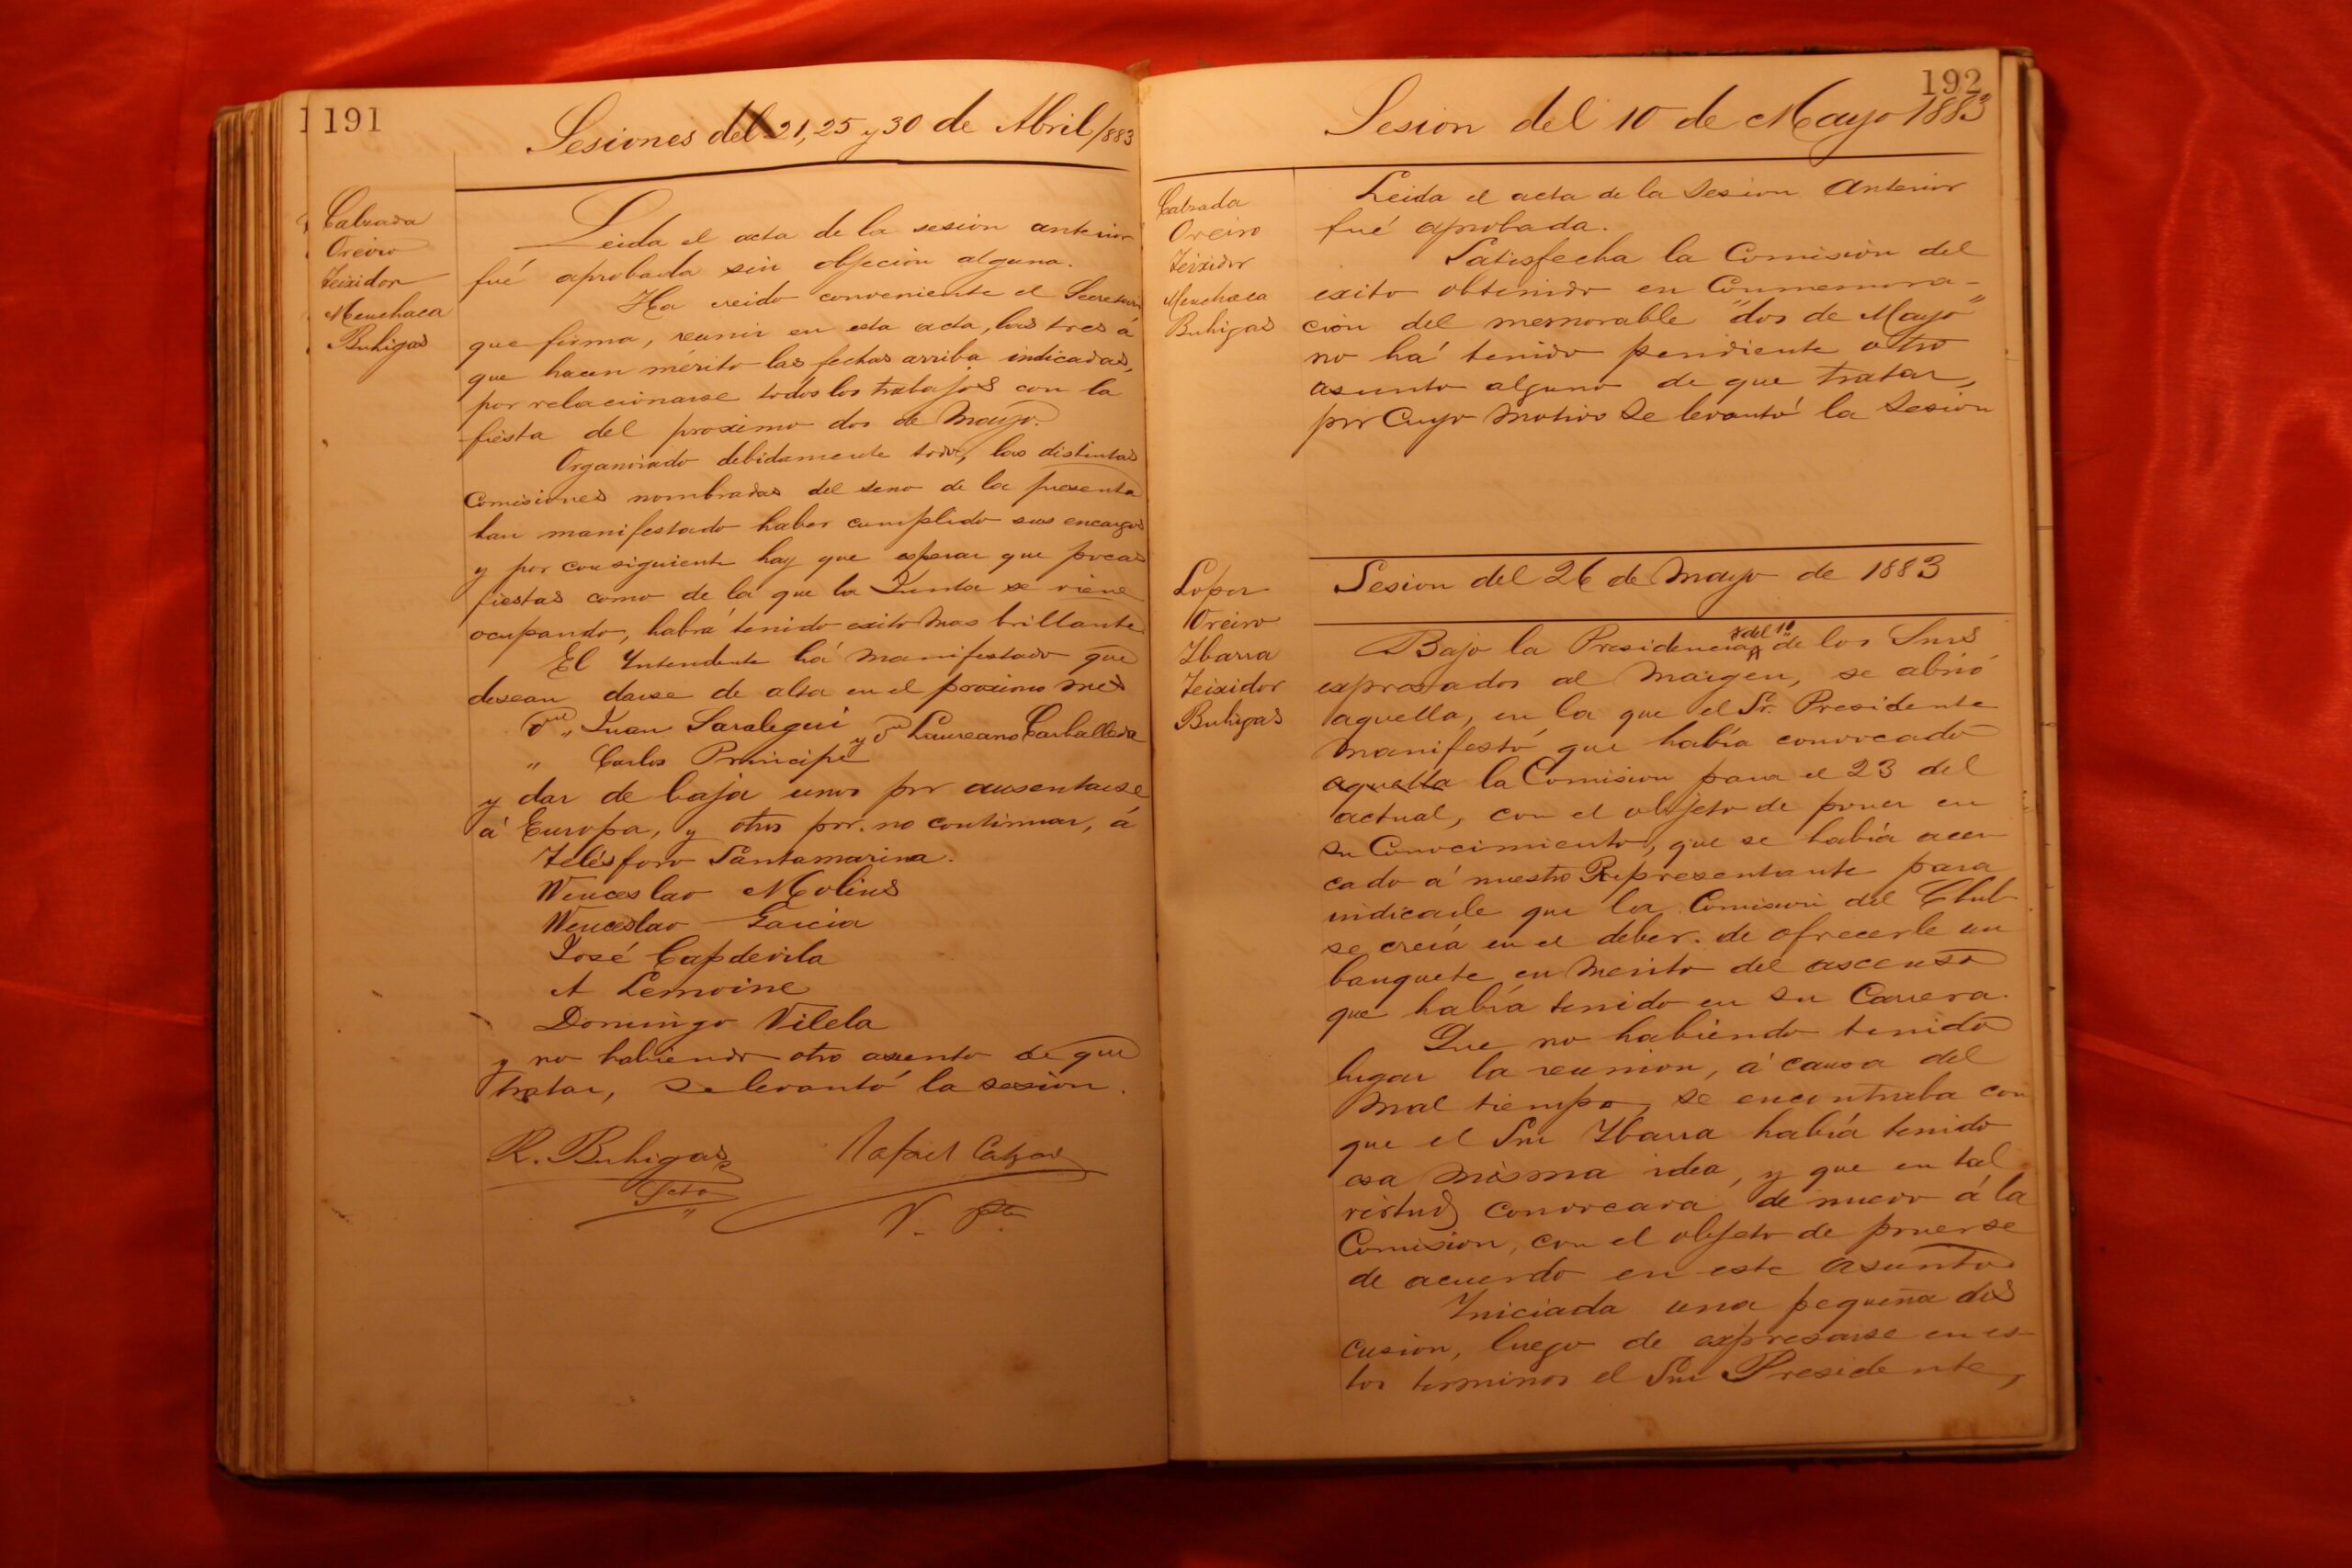 191
Sesiones del 21, 25 y 30 de Abril/883
Calzada
Oreiro
Teixidor
Menchaca
Buhigas
Leida el acta de la sesión anterior
fué aprobada sin objecion alguna.
Ha creido conveniente el Secretario
que firma, reunir en esta acta, las tres á
que hacen mérito las fechas arriba indicadas,
por relacionarse todos los trabajos con la
fiesta del proximo dos de Mayo.
Organizado debidamente todo, las distintas
Comisiones nombradas del seno de la presente
han manifestado haber cumplido sus encargos
y por consiguiente hay que esperar que pocas
fiestas como de la que la Junta se viene
ocupando, habrá tenido exito mas brillante.
El Yntendente há manifestado que
desean darse de alta en el proximo mes
Dn. Juan Saralegui y Dn Laureano Carballeda
" Carlos Principe
y dar de baja unos por ausentarse
á Europa, y otros por no continuar, á
Telésforo Santamarina.
Wenceslao Molins
Wenceslao Garcia
José Capdevila
A Lemoine
Domingo Vilela
y no habiendo otro asunto de que
tratar, se levantó la sesión.
R. Buhigas
Scto
Rafael Calzada
V. Pte
192
Sesion del 10 de Mayo 1883
Calzada
Oreiro
Teixidor
Menchaca
Buhigas
Leida el acta de la Sesion Anterior
fué aprobada.
Satisfecha la Comision del
exito obtenido en Conmemora-
cion del memorable "dos de Mayo"
no há tenido pendiente otro
asunto alguno de que tratar,
por Cuyo motivo Se levantó la Sesion
Sesion del 26 de Mayo de 1883
Lopez
Oreiro
Ybarra
Teixidor
Buhigas
Bajo la Presidencia de los Snrs
expresados al Margen, se abrió
aquella, en la que el Sr. Presidente
manifestó que había convocado
aquella la Comision para el 23 del
actual, con el objeto de poner en
su Conocimiento, que se había acer
cado á nuestro Representante para
indicarle que la Comision del Club
se creiá en el deber de ofrecerle un
banquete en merito del ascenso
que había tenido en su Carrera.
Que no habiendo tenido
lugar la reunion, á causa del
mal tiempo, se encontraba con
que el Snr Ybarra había tenido
esa misma idea, y que en tal
virtud convocara de nuevo á la
Comision, con el objeto de ponerse
de acuerdo en este asunto
Yniciada una pequeña dis
cusion, luego de expresarse en es-
tos terminos el Snr Presidente,